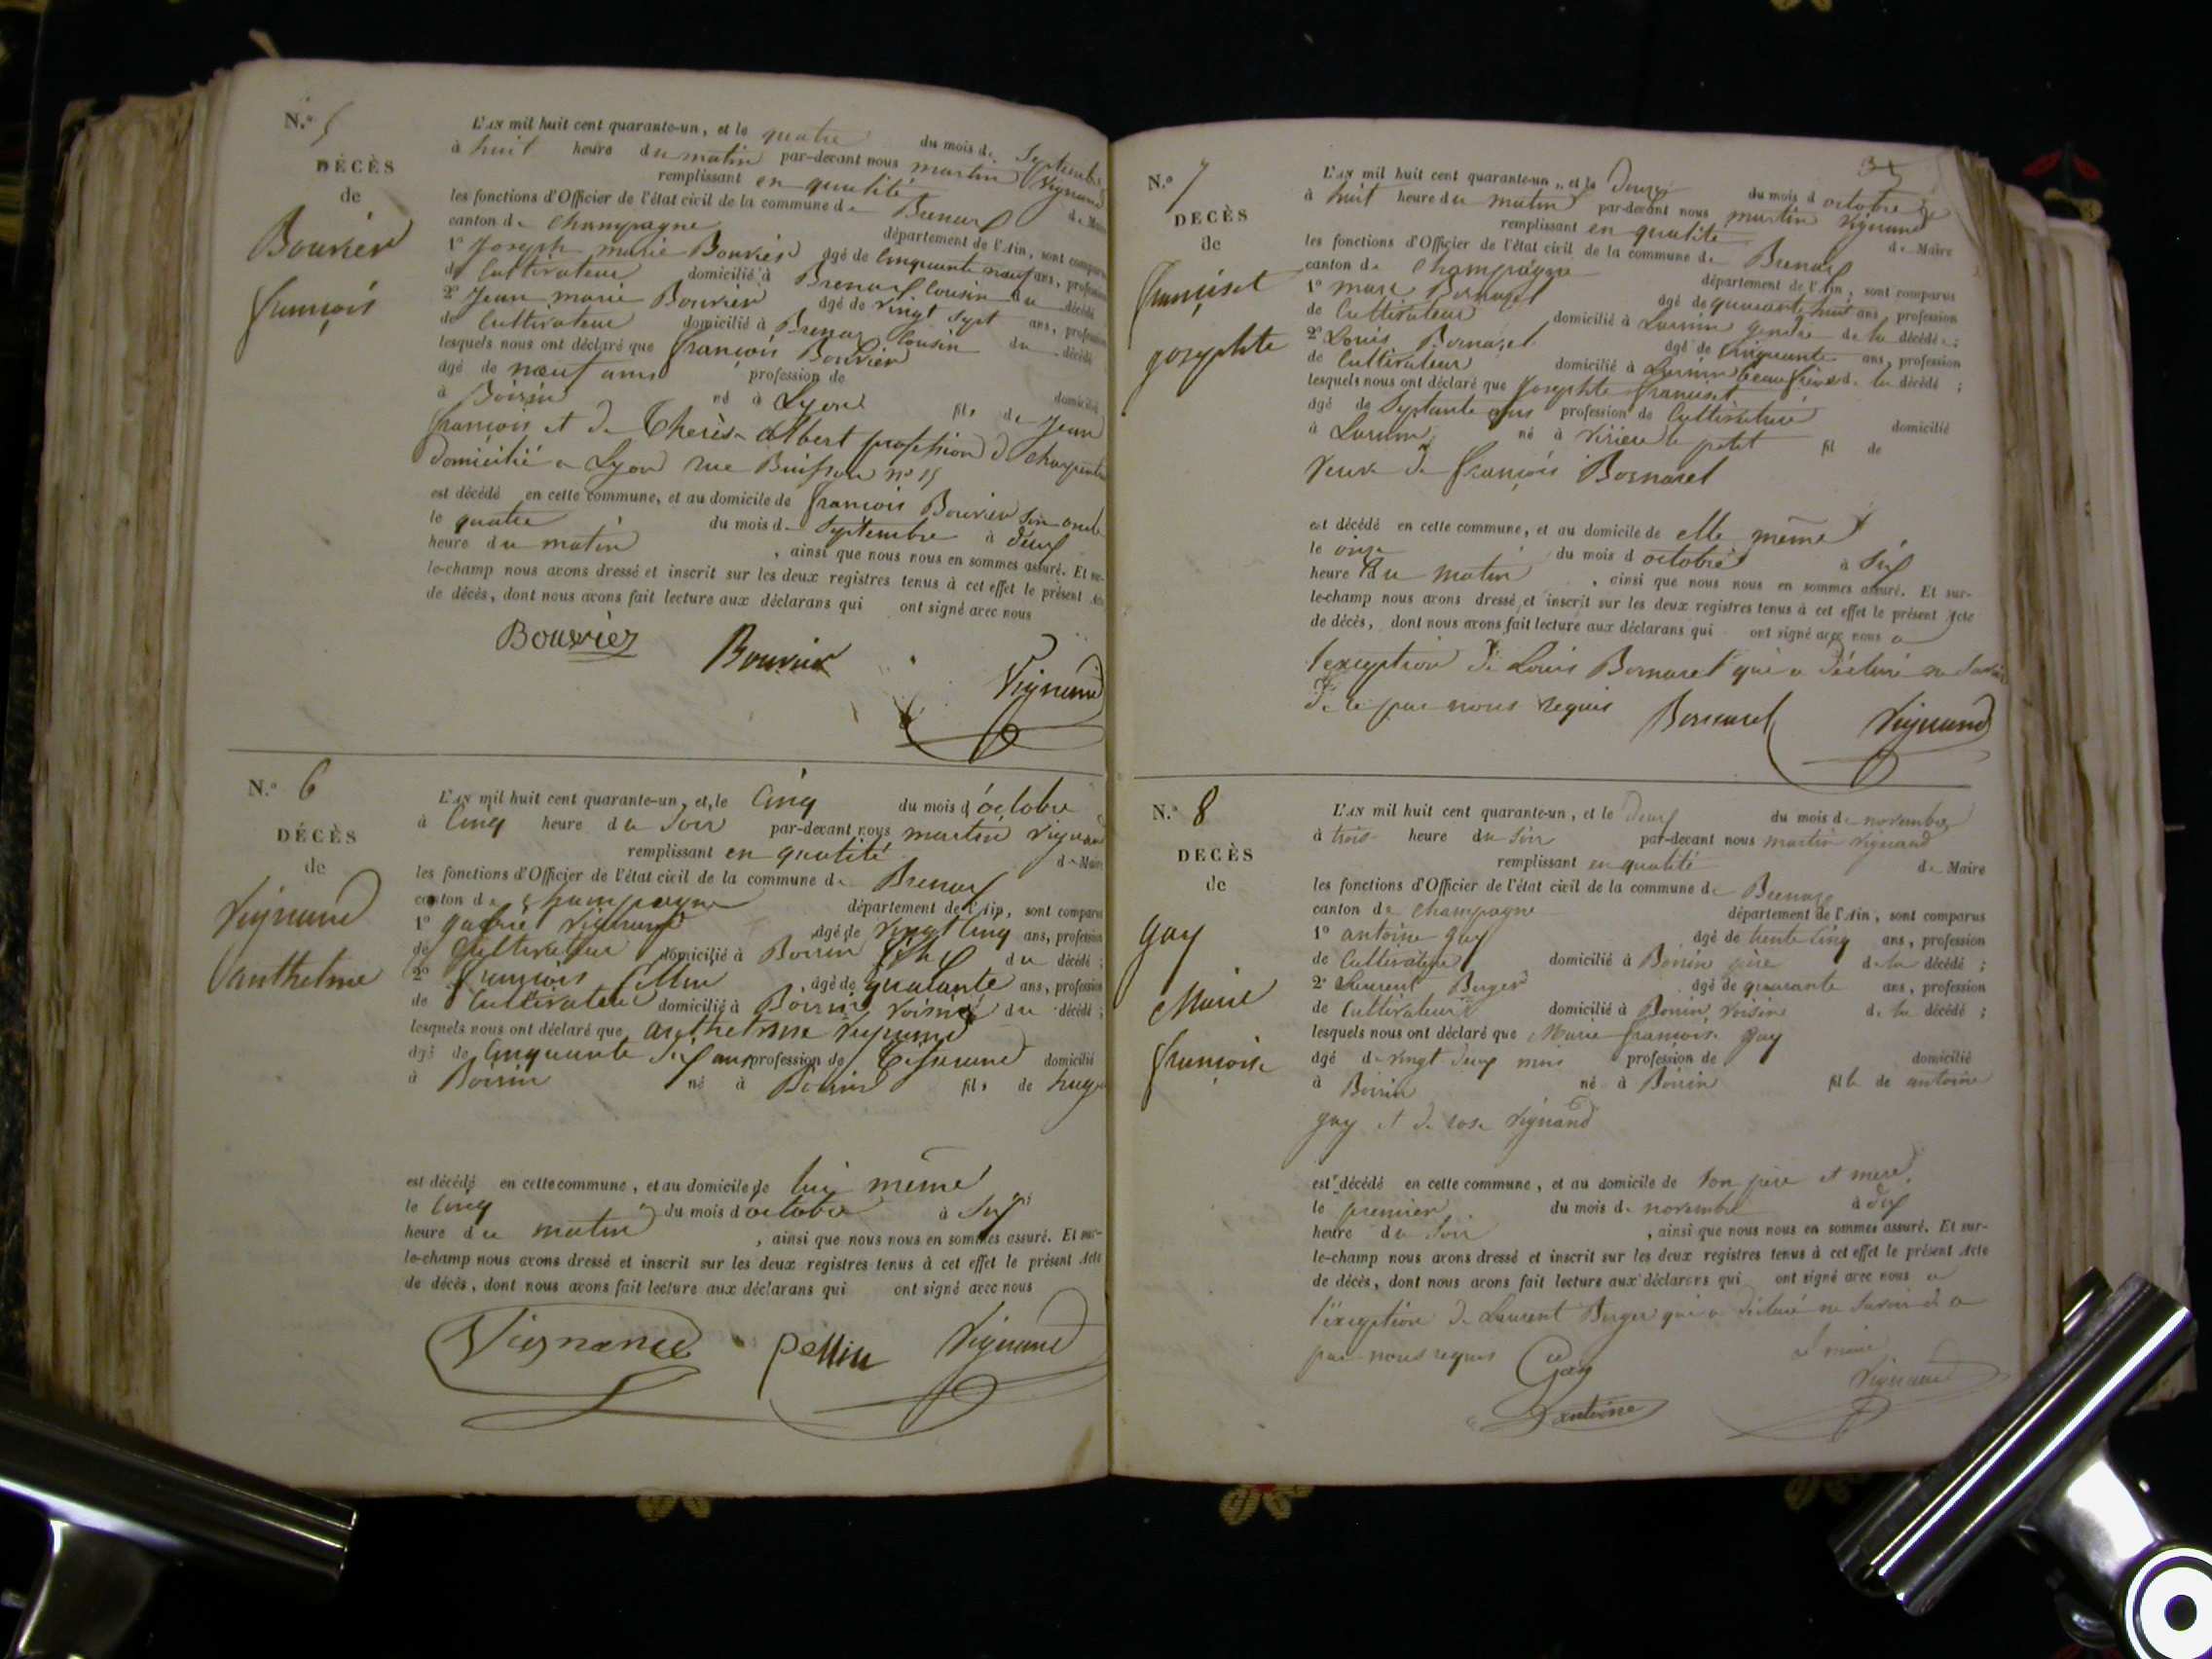 N.° 5
DÉCÈS
de
Bouvier
françois
L'AN mil huit cent quarante-un, et le quatre du mois de Septembre
à huit heure du matin par-devant nous martin Vignand
remplissant en qualité de Maire
les fonctions d'Officier de l'état civil de la commune de Brenaz
canton de Champagne département de l'Ain, sont comparus
1° Joseph marie Bouvier âgé de Cinquante neuf ans, profession
de Cultivateur domicilié à Brenaz Cousin du décédé
2° Jean marie Bouvier âgé de vingt sept ans, profession
de Cultivateur domicilié à Brenaz Cousin du décédé
lesquels nous ont déclaré que françois Bouvier
âgé de neuf ans profession de domicilié
à Boirin né à Lyon fils de Jean
françois et de Therèse Albert profession de charpentier
Domicilié a Lyon rue Buisson n° 15
est décédé en cette commune, et au domicile de françois Bouvier Son oncle
le quatre du mois de Septembre à deux
heure du matin , ainsi que nous nous en sommes assuré. Et sur-
le-champ nous avons dressé et inscrit sur les deux registres tenus à cet effet le présent Acte
de décès, dont nous avons fait lecture aux déclarans qui ont signé avec nous
Bouvier Bouvier
Vignand
N.° 6
DÉCÈS
de
Vignand
anthelme
L'AN mil huit cent quarante-un, et le Cinq du mois d'octobre
à Cinq heure du Soir par-devant nous martin Vignand
remplissant en qualité de Maire
les fonctions d'Officier de l'état civil de la commune de Brenaz
canton de Champagne département de l'Ain, sont comparus
1° Vignand âgé de vingt Cinq ans, profession
de Cultivateur domicilié à Boirin fils du décédé ;
2° francois âgé de quarante ans, profession
de Cultivateur domicilié à Boirin Voisin du décédé ;
lesquels nous ont déclaré que anthelme Vignand
âgé de Cinquante Six ans profession de Tisserand domicilié
à Boirin né à Boirin fils de
est décédé en cette commune, et au domicile de lui même
le Cinq du mois d octobre à Six
heure du matin , ainsi que nous nous en sommes assuré. Et sur-
le-champ nous avons dressé et inscrit sur les deux registres tenus à cet effet le présent Acte
de décès, dont nous avons fait lecture aux déclarans qui ont signé avec nous
Vignand Vignand
N.° 7
DÉCÈS
de
franciset
josephte
L'AN mil huit cent quarante-un, et le Douze du mois d octobre
à huit heure du matin par-devant nous martin Vignand
remplissant en qualité de Maire
les fonctions d'Officier de l'état civil de la commune de Brenaz
canton de Champagne département de l'Ain, sont comparus
1° marc Bornaret âgé de quarante huit ans profession
de Cultivateur domicilié à gendre de la décédée ;
2° Louis Bornaret âgé de Cinquante ans, profession
de Cultivateur domicilié à beau frère de la décédé ;
lesquels nous ont déclaré que Josephte franciset
âgé de Septante ans profession de Cultivatrice domicilié
à né à Virieu le petit fil de
veuve de françois Bornaret
est décédé en cette commune, et au domicile de elle même
le onze du mois d octobre à Six
heure du matin , ainsi que nous nous en sommes assuré. Et sur-
le-champ nous avons dressé et inscrit sur les deux registres tenus à cet effet le présent Acte
de décès, dont nous avons fait lecture aux déclarans qui ont signé avec nous a
l'exeption de Louis Bornaret qui a déclaré ne Savoir
de ce par nous requis Bornaret Vignand
N.° 8
DÉCÈS
de
gay
Marie
françoise
L'AN mil huit cent quarante-un, et le Deux du mois de novembre
à trois heure du Soir par-devant nous martin Vignand
remplissant en qualité de Maire
les fonctions d'Officier de l'état civil de la commune de Brenaz
canton de Champagne département de l'Ain, sont comparus
1° antoine gay âgé de trente Cinq ans, profession
de Cultivateur domicilié à Boirin père de la décédé ;
2° Laurent Berger âgé de quarante ans, profession
de Cultivateur domicilié à Boirin Voisin de la décédé ;
lesquels nous ont déclaré que Marie françoise gay
âgé de vingt deux mois profession de domicilié
à Boirin né à Boirin fille de antoine
gay et de rose Vignand
est décédé en cette commune, et au domicile de son père et mère
le premier du mois de novembre à dix
heure du Soir , ainsi que nous nous en sommes assuré. Et sur-
le-champ nous avons dressé et inscrit sur les deux registres tenus à cet effet le présent Acte
de décès, dont nous avons fait lecture aux déclarans qui ont signé avec nous a
l'exeption de Laurent Berger qui a déclaré ne Savoir de a
par nous requis Gay
antoine Vignand